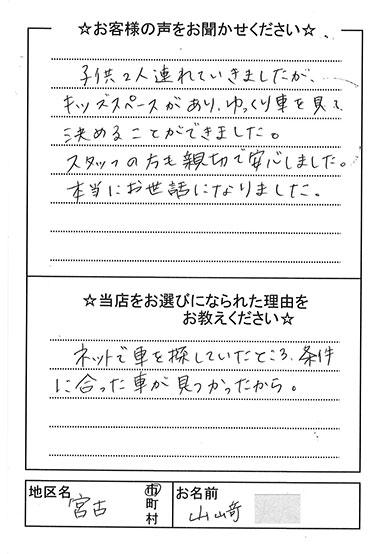 ☆お客様の声をお聞かせください☆
子供2人連れていきましたが、
キッズスペースがあり、ゆっくり車を見て
決めることができました。
スタッフの方も親切で安心しました。
本当にお世話になりました。
☆当店をお選びになられた理由を
お教えください☆
ネットで車を探していたところ、条件
に合った車が見つかったから。
地区名 宮古 市町村
お名前 山﨑